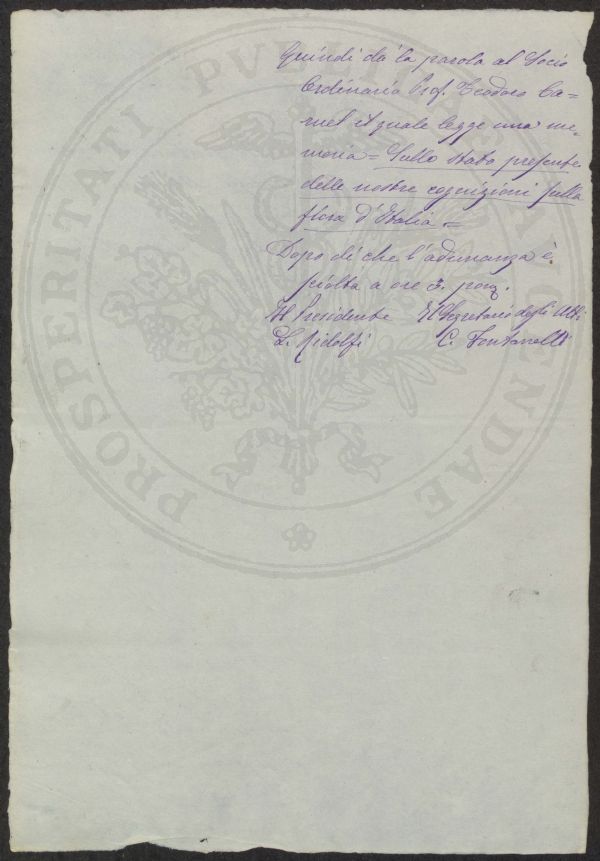 Quindi dà la parola al Socio
Ordinario Prof. Teodoro Ca=
ruel il quale legge una me=
moria = Sullo stato presente
delle nostre cognizioni sulla
flora d'Italia =
Dopo di che l'adunanza è
sciolta a ore 3. pom.
Il Presidente Il Segretario degli Atti
L. Ridolfi C. Fontanelli
PROSPERITATI PVBLICAE AVGENDAE